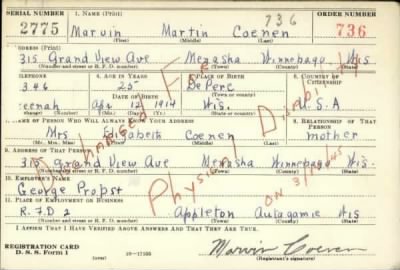 SERIAL NUMBER 1. NAME (Print) 736 ORDER NUMBER
2775 Marvin Martin Coenen 736
(First) (Middle) (Last)
ADDRESS (Print)
315 Grand View Ave Menasha Winnebago Wis
(Number and street or R. F. D. number) (Town) (County) (State)
TELEPHONE 4. AGE IN YEARS 5. PLACE OF BIRTH 6. COUNTRY OF CITIZENSHIP
346 25 De Pere
DATE OF BIRTH
eenah Apr 12 1914 Wis. U.S.A
(Mo.) (Day) (Yr.)
NAME OF PERSON WHO WILL ALWAYS KNOW YOUR ADDRESS 8. RELATIONSHIP OF THAT PERSON
Mrs Elizabeth Coenen mother
(Mr., Mrs., Miss) (First) (Middle) (Last)
9. ADDRESS OF THAT PERSON
315 Grand View Ave Menasha Winnebago Wis.
(Number and street or R. F. D. number) (Town) (County) (State)
10. EMPLOYER'S NAME
George Propst
11. PLACE OF EMPLOYMENT OR BUSINESS
R.F.D 2 Appleton Outagamie Wis
(Number and street or R. F. D. number) (Town) (County) (State)
I AFFIRM THAT I HAVE VERIFIED ABOVE ANSWERS AND THAT THEY ARE TRUE.
REGISTRATION CARD
D. S. S. Form 1 (over) 16—17105 Marvin Coenen
(Registrant's signature)
Discharged
Physical Disability
ON